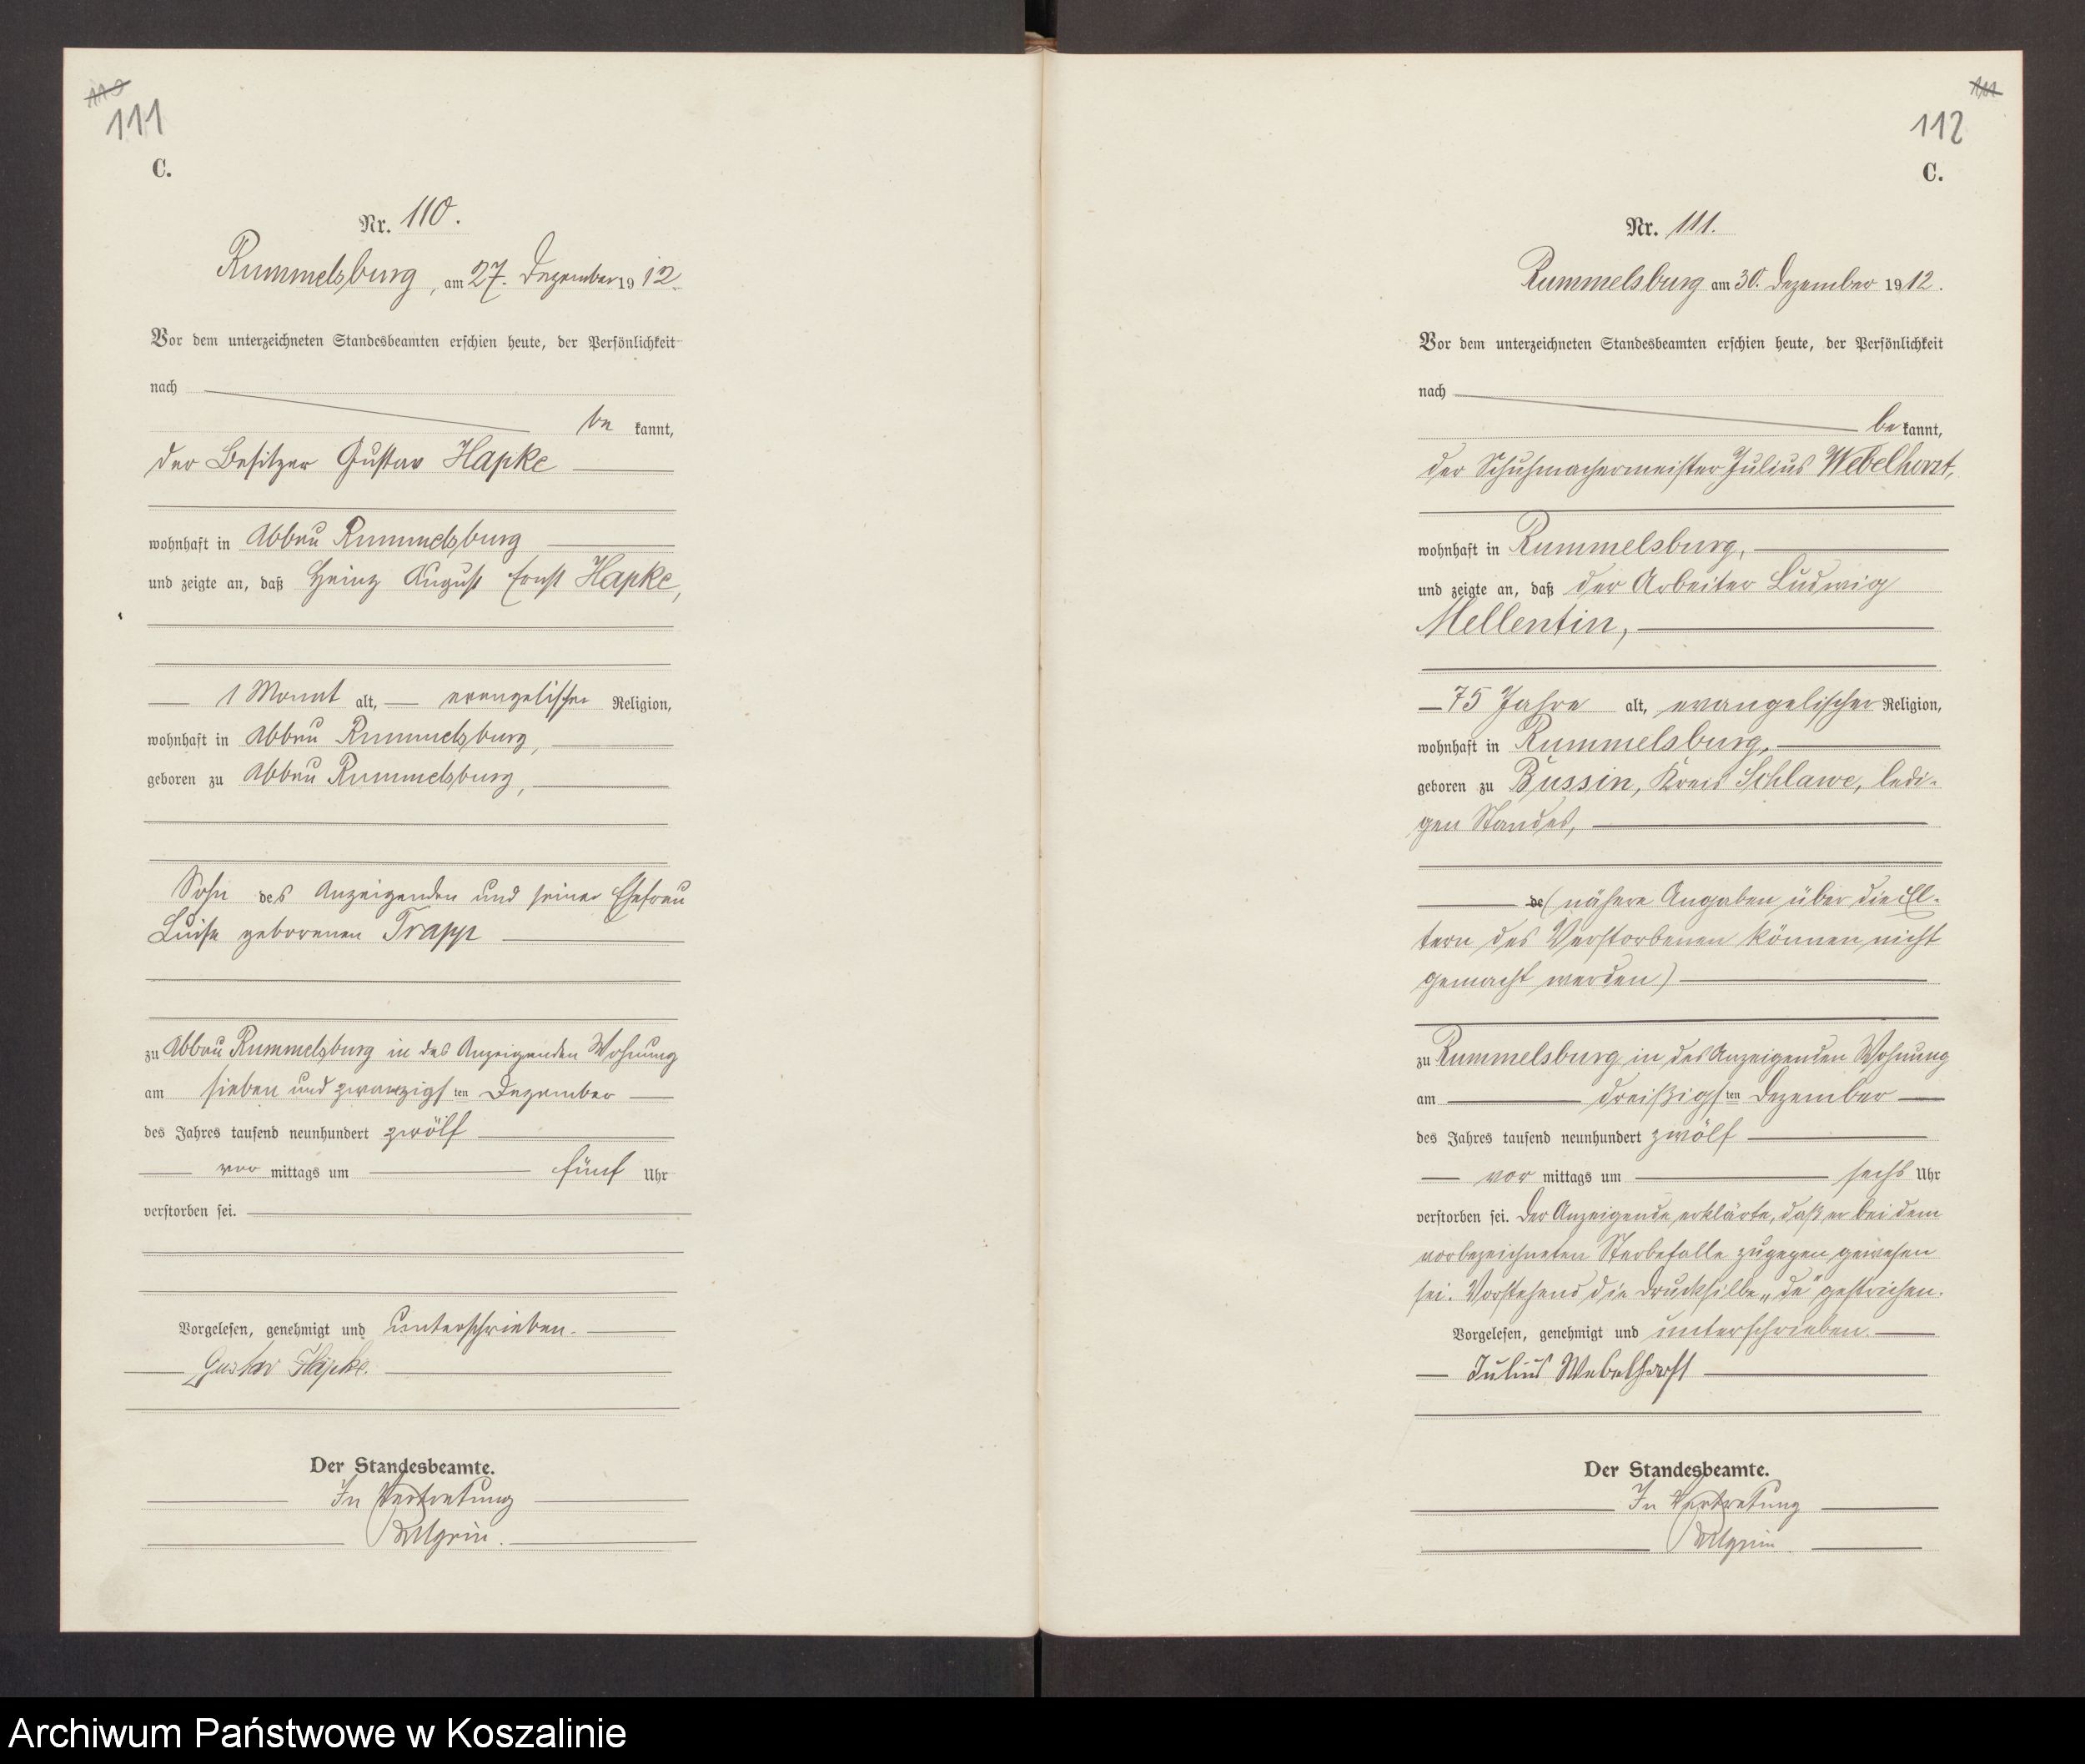 110
111
C.
Nr. 110.
Rummelsburg, am 27. Dezember 1912.
Vor dem unterzeichneten Standesbeamten erschien heute, der Persönlichkeit
nach
be kannt,
der Besitzer Gustav Hapke
wohnhaft in Abbau Rummelsburg
und zeigte an, daß Heinz August Ernst Hapke,
1 Monat alt, evangelischer Religion,
wohnhaft in Abbau Rummelsburg,
geboren zu Abbau Rummelsburg,
Sohn des Anzeigenden und seiner Ehefrau
Luise geborenen Trapp
zu Abbau Rummelsburg in des Anzeigenden Wohnung
am sieben und zwanzigsten Dezember
des Jahres tausend neunhundert zwölf
vor mittags um fünf Uhr
verstorben sei.
Vorgelesen, genehmigt und unterschrieben.
Gustav Hapke.
Der Standesbeamte.
In Vertretung
111
112
C.
Nr. 111.
Rummelsburg am 30. Dezember 1912.
Vor dem unterzeichneten Standesbeamten erschien heute, der Persönlichkeit
nach
be kannt,
der Schuhmachermeister Julius Webelhorst,
wohnhaft in Rummelsburg,
und zeigte an, daß der Arbeiter Ludwig
Mellentin,
75 Jahre alt, evangelischer Religion,
wohnhaft in Rummelsburg,
geboren zu Bussin, Kreis Schlawe, ledi-
gen Standes,
de (nähere Angaben über die El-
tern des Verstorbenen können nicht
gemacht werden)
zu Rummelsburg in des Anzeigenden Wohnung
am dreißigsten Dezember
des Jahres tausend neunhundert zwölf
vor mittags um sechs Uhr
verstorben sei. Der Anzeigende erklärte, daß er bei dem
vorbezeichneten Sterbefalle zugegen gewesen
sei. Vorstehend die Drucksilbe „de" gestrichen.
Vorgelesen, genehmigt und unterschrieben.
Julius Webelhorst
Der Standesbeamte.
In Vertretung
Archiwum Państwowe w Koszalinie